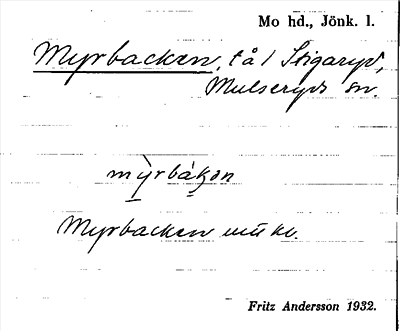 Mo hd., Jönk. l.
Myrbacken, tå 1 Stigaryd,
Mulseryds sn.
mỳrbákən
Myrbacken
Fritz Andersson 1932.